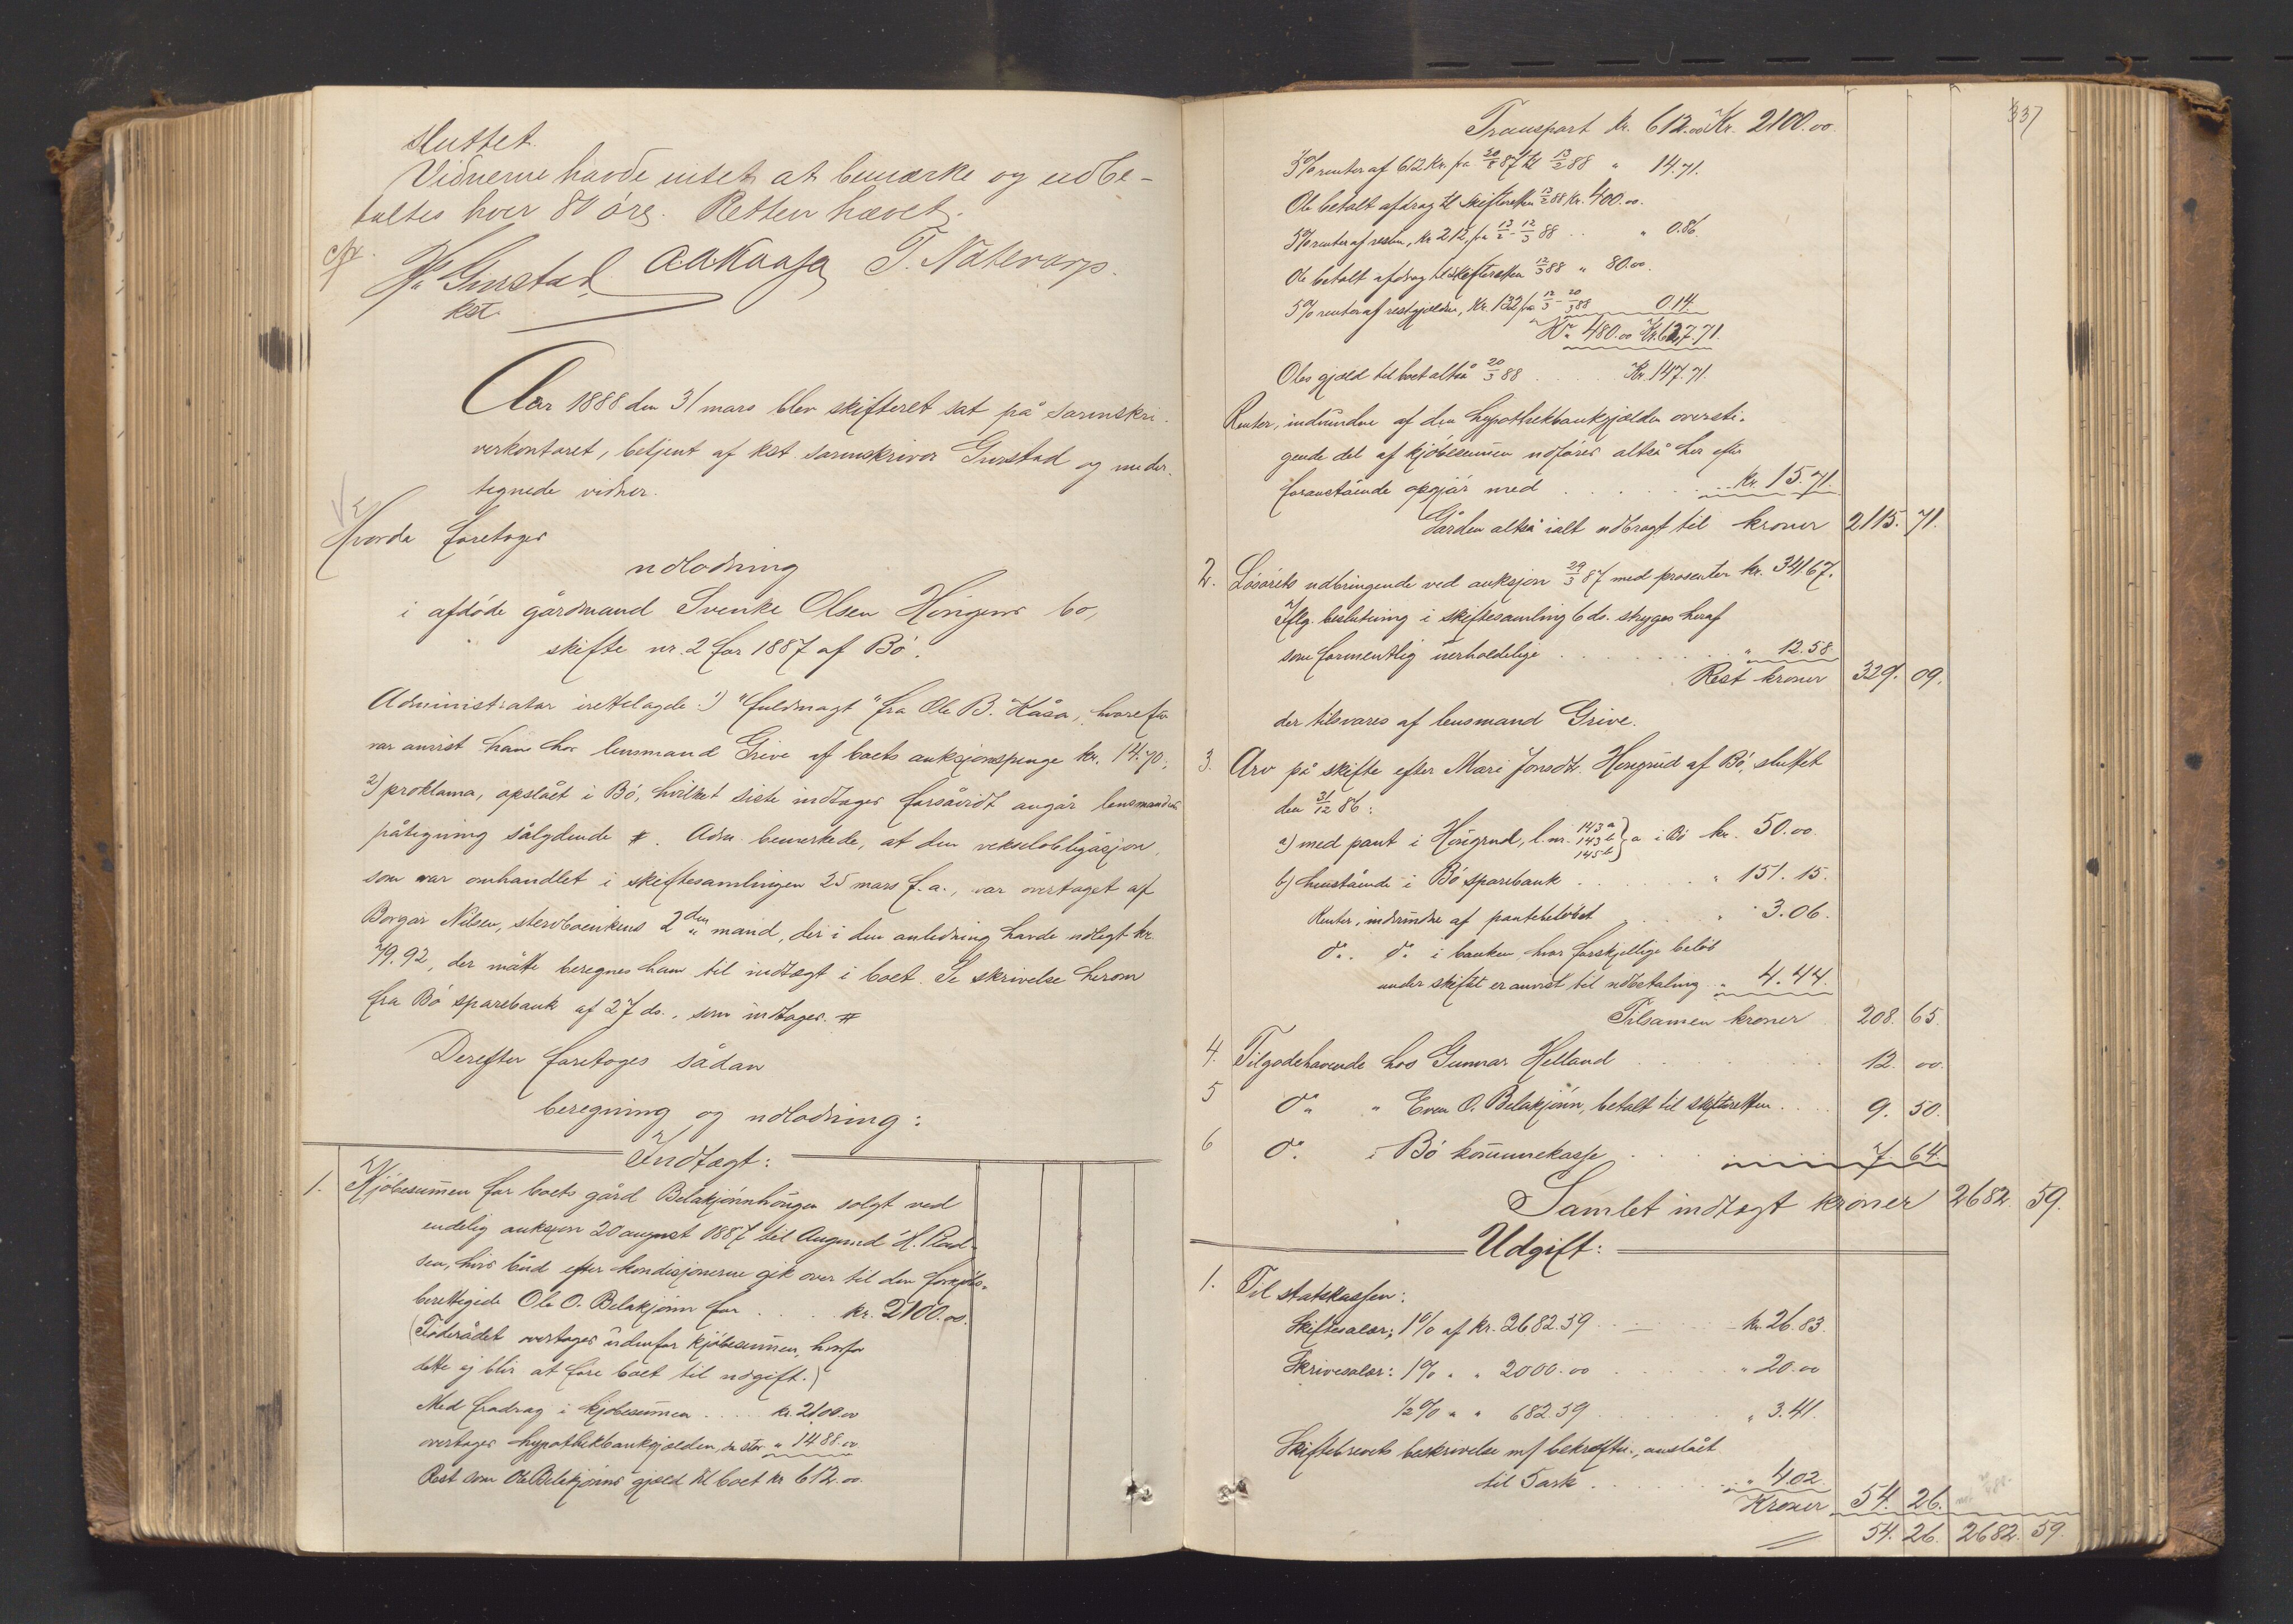 sluttet.
Vidnerne havde intet at bemærke og udbe-
taltes hver 80 öre. Retten hævet.
A. A. Kaasa T. Nåtevarp.
kst.
Aar 1888 den 31 mars blev skifteret sat på sorenskri-
verkontoret, betjent af kst. sorenskriver Gurstad og under-
tegnede vidner.
Hvorda foretoges
udlodning
i afdöde gårdmand Svenke Olsen Haugens bo,
skifte nr. 2 for 1887 af Bö.
Administrator irettelagde: 1) "fuldmagt" fra Ole B. Kåsa, hvorefter
var anvist ham hos lensmand Grive af boets auksjonspenge kr. 14.70;
2) proklama, opslået i Bö, hvilket siste indtages forsåvidt angår lensmandens
påtegning sålydende #. Adm. bemerkede, at den vekselobligasjon,
som var omhandlet i skiftesamlingen 25 mars f. a., var overtaget af
Borgar Nilsen, stervboenkens 2den mand, der i den anledning havde udlagt kr.
79.92, der måtte beregnes ham til indtægt i boet. Se skrivelse herom
fra Bö sparebank af 27 ds., som indtages. #
Derefter foretoges sådan
beregning og udlodning:
Indtægt:
1. Kjöbesummen for boets gård Belakjönnhaugen solgt ved
endelig auksjon 20 august 1887 til Augund H.
sen, hvis bud efter kondisjonerne gik over til den forkjöbs-
berettigede Ole O. Belakjönn for . . . kr. 2100.00.
(Föderådet overtages udenfor kjöbesummen, hvorfor
dette ej blir at före boet til udgift.)
Med fradrag i kjöbesummen . . . . kr. 2100.00
overtages hypothekbankgjælden, der stor " 1488.00
Rest som Ole Belakjönns gjæld til boet kr. 612.00
337
Transport kr. 612.00 Kr. 2100.00.
5% renter af 612 kr. fra 20/8 87 til 13/2 88 " 14.71.
Ole betalt afdrag til skifteretten 13/2 88 kr. 400.00.
5% renter af resten, kr. 212, fra 13/2 - 12/3 88 . . " 0.86.
Ole betalt afdrag til skifteretten 12/3 88 " 80.00.
5% renter af restgjælden, kr. 132 fra 12/3 - 20/3 88 0.14.
Kr. 480.00 Kr. 627.71.
Oles gjæld til boet altså 20/3 88 . . . . Kr. 147.71.
Renter, indvundne af den hypothekbankgjælden oversti-
gende del af kjöbesummen udföres altså her efter
foranstående opgjör med . . . . . . kr. 15.71.
Gården altså ialt udbragt til kroner 2115. 71.
2. Lösörets udbringende ved auksjon 29/3 87 med prosenter kr. 341.67.
Iflg. beslutning i skiftesamling 6 ds. stryges heraf
som formentlig uerholdelige . . . . . . . " 12.58
Rest kroner 329. 09.
der tilsvares af lensmand Grive.
3. Arv på skifte efter Mari Jonsdt. Haugrud af Bö, sluttet
den 31/12 86:
a) med pant i Haugrud, l. nr. 143a 143b 145b } a i Bö kr. 50.00.
b) henstående i Bö sparebank . . . . . . " 151.15.
Renter, indvundne af pantebelöbet . . . . " 3.06.
do. do. i banken hvor forskjellige belöb
under skiftet er anvist til udbetaling . " 4.44.
Tilsammen kroner 208. 65.
4. Tilgodehavende hos Gunnar Helland . . . . 12. 00.
5 do. " Even O. Belakjönn, betalt til skifteretten . . . 9. 50.
6 do. i Bö kommunekasse . . . . 7. 64.
Samlet indtægt kroner 2682. 59.
Udgift:
1. Til statskassen:
Skiftesalær; 1% af kr. 2682.59 . . . . . kr. 26.83.
Skrivesalær: 1% " " 2000.00 . . . . . " 20.00
1/2% " " 682.59 . . . . . " 3.41.
Skiftebrevets beskrivelse mf bekræftn., anslået
til 5 ark . . . . . . " 4.02.
Kroner 54. 26.
54. 26. 2682. 59.